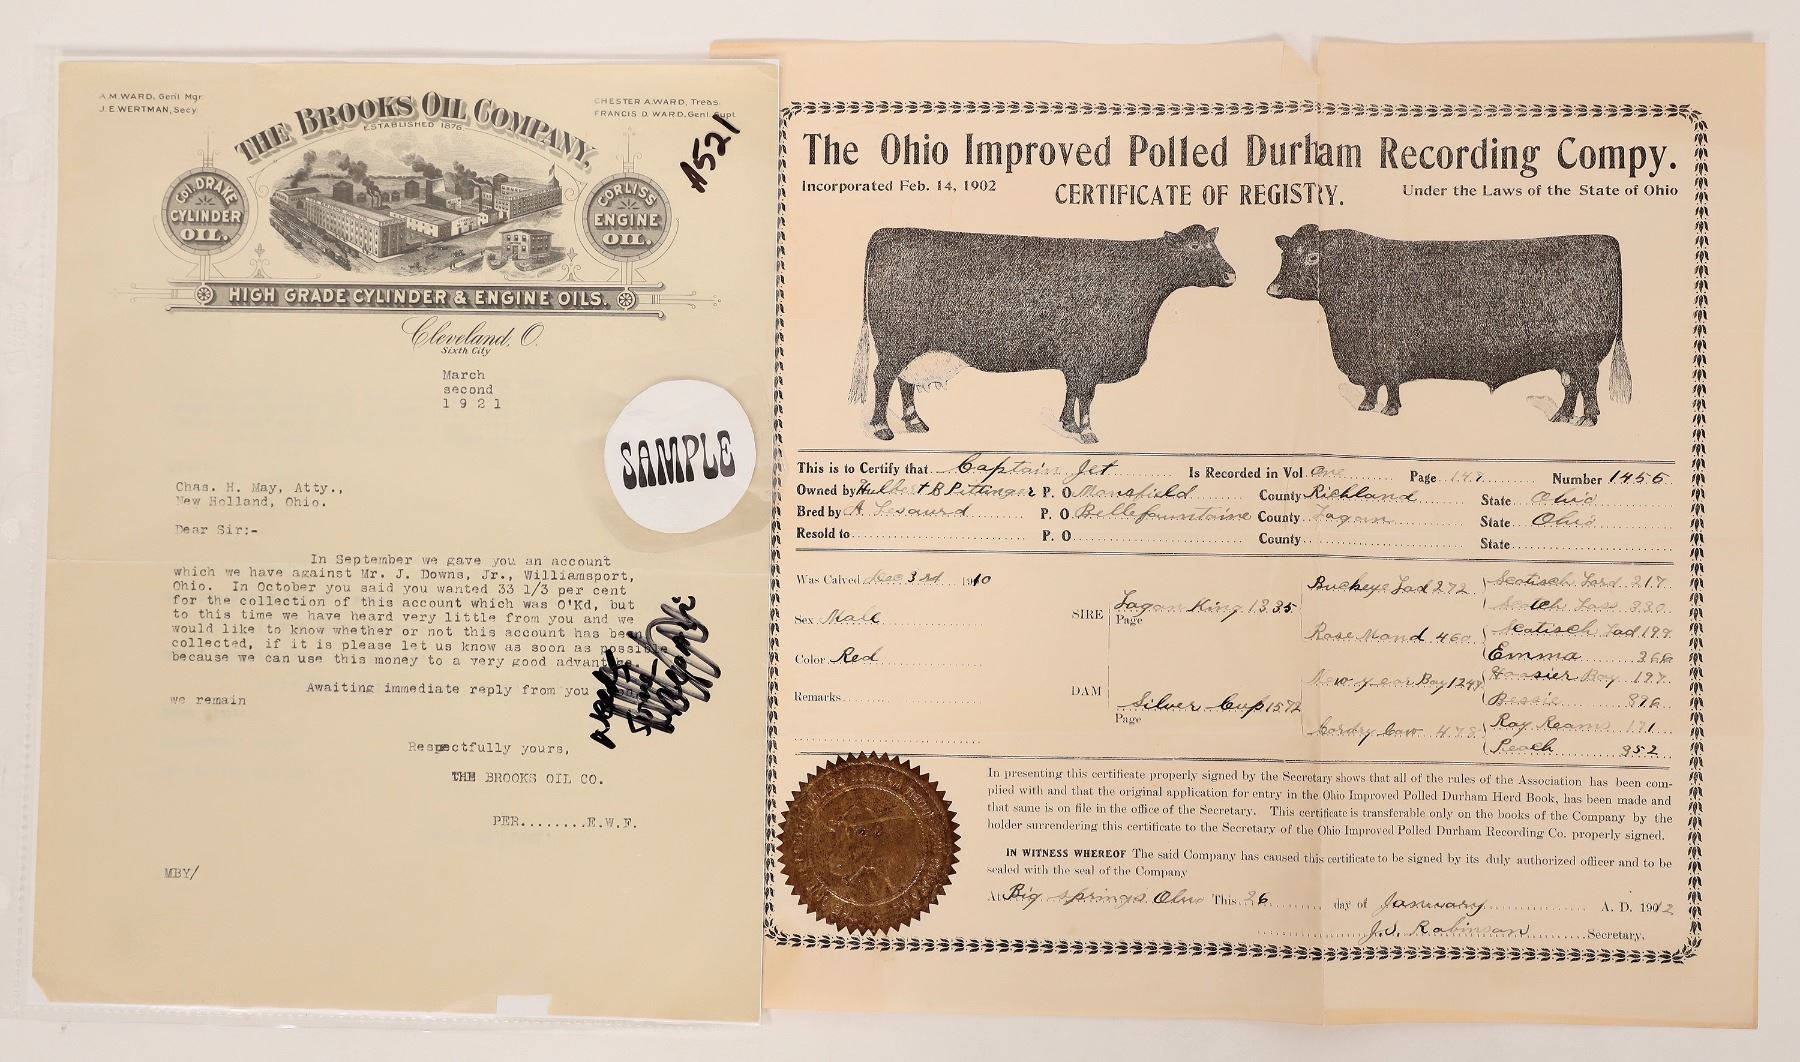 A.M. WARD, Genl Mgr.
J.E. WERTMAN, Secy.
CHESTER A. WARD, Treas.
FRANCIS D. WARD, Genl. Supt.
THE BROOKS OIL COMPANY,
ESTABLISHED 1876.
COL. DRAKE
CYLINDER
OIL.
CORLISS
ENGINE
OIL.
HIGH GRADE CYLINDER & ENGINE OILS.
A521
Cleveland, O.
Sixth City
March
second
1 9 2 1
SAMPLE
Chas. H. May, Atty.,
New Holland, Ohio.
Dear Sir:-
In September we gave you an account
which we have against Mr. J. Downs, Jr., Williamsport,
Ohio. In October you said you wanted 33 1/3 per cent
for the collection of this account which was O'Kd, but
to this time we have heard very little from you and we
would like to know whether or not this account has been
collected, if it is please let us know as soon as possible
because we can use this money to a very good advantage.
Awaiting immediate reply from you
we remain
Respectfully yours,
THE BROOKS OIL CO.
PER........E.W.F.
MBY/
The Ohio Improved Polled Durham Recording Compy.
Incorporated Feb. 14, 1902
CERTIFICATE OF REGISTRY.
Under the Laws of the State of Ohio
This is to Certify that Captain Jet Is Recorded in Vol One Page 147 Number 1456
Owned by Hulbert B Pittinger P. O Mansfield County Richland State Ohio
Bred by A Lesourd P. O. Bellefountaine County Logan State Ohio
Resold to P. O County State
Was Calved Dec 3rd 1910
Sex Male
Color Red
Remarks
SIRE Logan King 1335
Page
DAM Silver Cup 1572
Page
Buckeye Lad 272
Rose Mond 460
New year Boy 1247
Cordry Cow 478
Scotisch Lord 217
Scotch Lass 330
Scotisch Lad 199
Emma 366
Hoosier Boy 197
Bessie 896
Roy Reams 171
Peach 952
In presenting this certificate properly signed by the Secretary shows that all of the rules of the Association has been com-
plied with and that the original application for entry in the Ohio Improved Polled Durham Herd Book, has been made and
that same is on file in the office of the Secretary. This certificate is transferable only on the books of the Company by the
holder surrendering this certificate to the Secretary of the Ohio Improved Polled Durham Recording Co. properly signed.
IN WITNESS WHEREOF The said Company has caused this certificate to be signed by its duly authorized officer and to be
sealed with the seal of the Company
At Big Springs Ohio This 26 day of January A. D. 1912
J. S. Robinson Secretary.